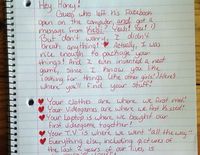 Hey Honey!
Guess who left his Facebook
open on the computer, and got a
message from Yeah! You!
(But don't worry, I didn't
break anything! ♥ Actually, I was
nice enough to package your
things! And I even invented a neat
game. Since I know you like
looking for things like other girls! Here's
where you'll find your stuff!
♥ Your clothes are where we first met
♥ Your videogames are where we first kissed!
♥ Your laptop is where we bought our
first awesome together!
♥ Your T.V is where we went "all the way"
♥ Everything else, including pictures of
the last 2 years of our lives is